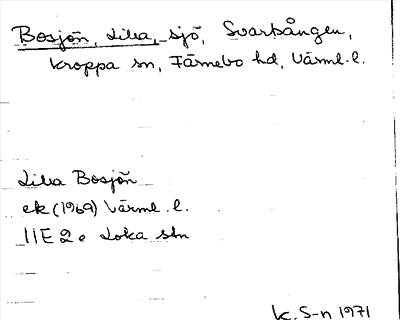 Bosjön, Lilla, sjö, Svartsången,
Kroppa sn, Färnebo hd, Värml. l.
Lilla Bosjön
ek (1969) Värml. l.
11E 2 e Loka stn
K. S-n 1971